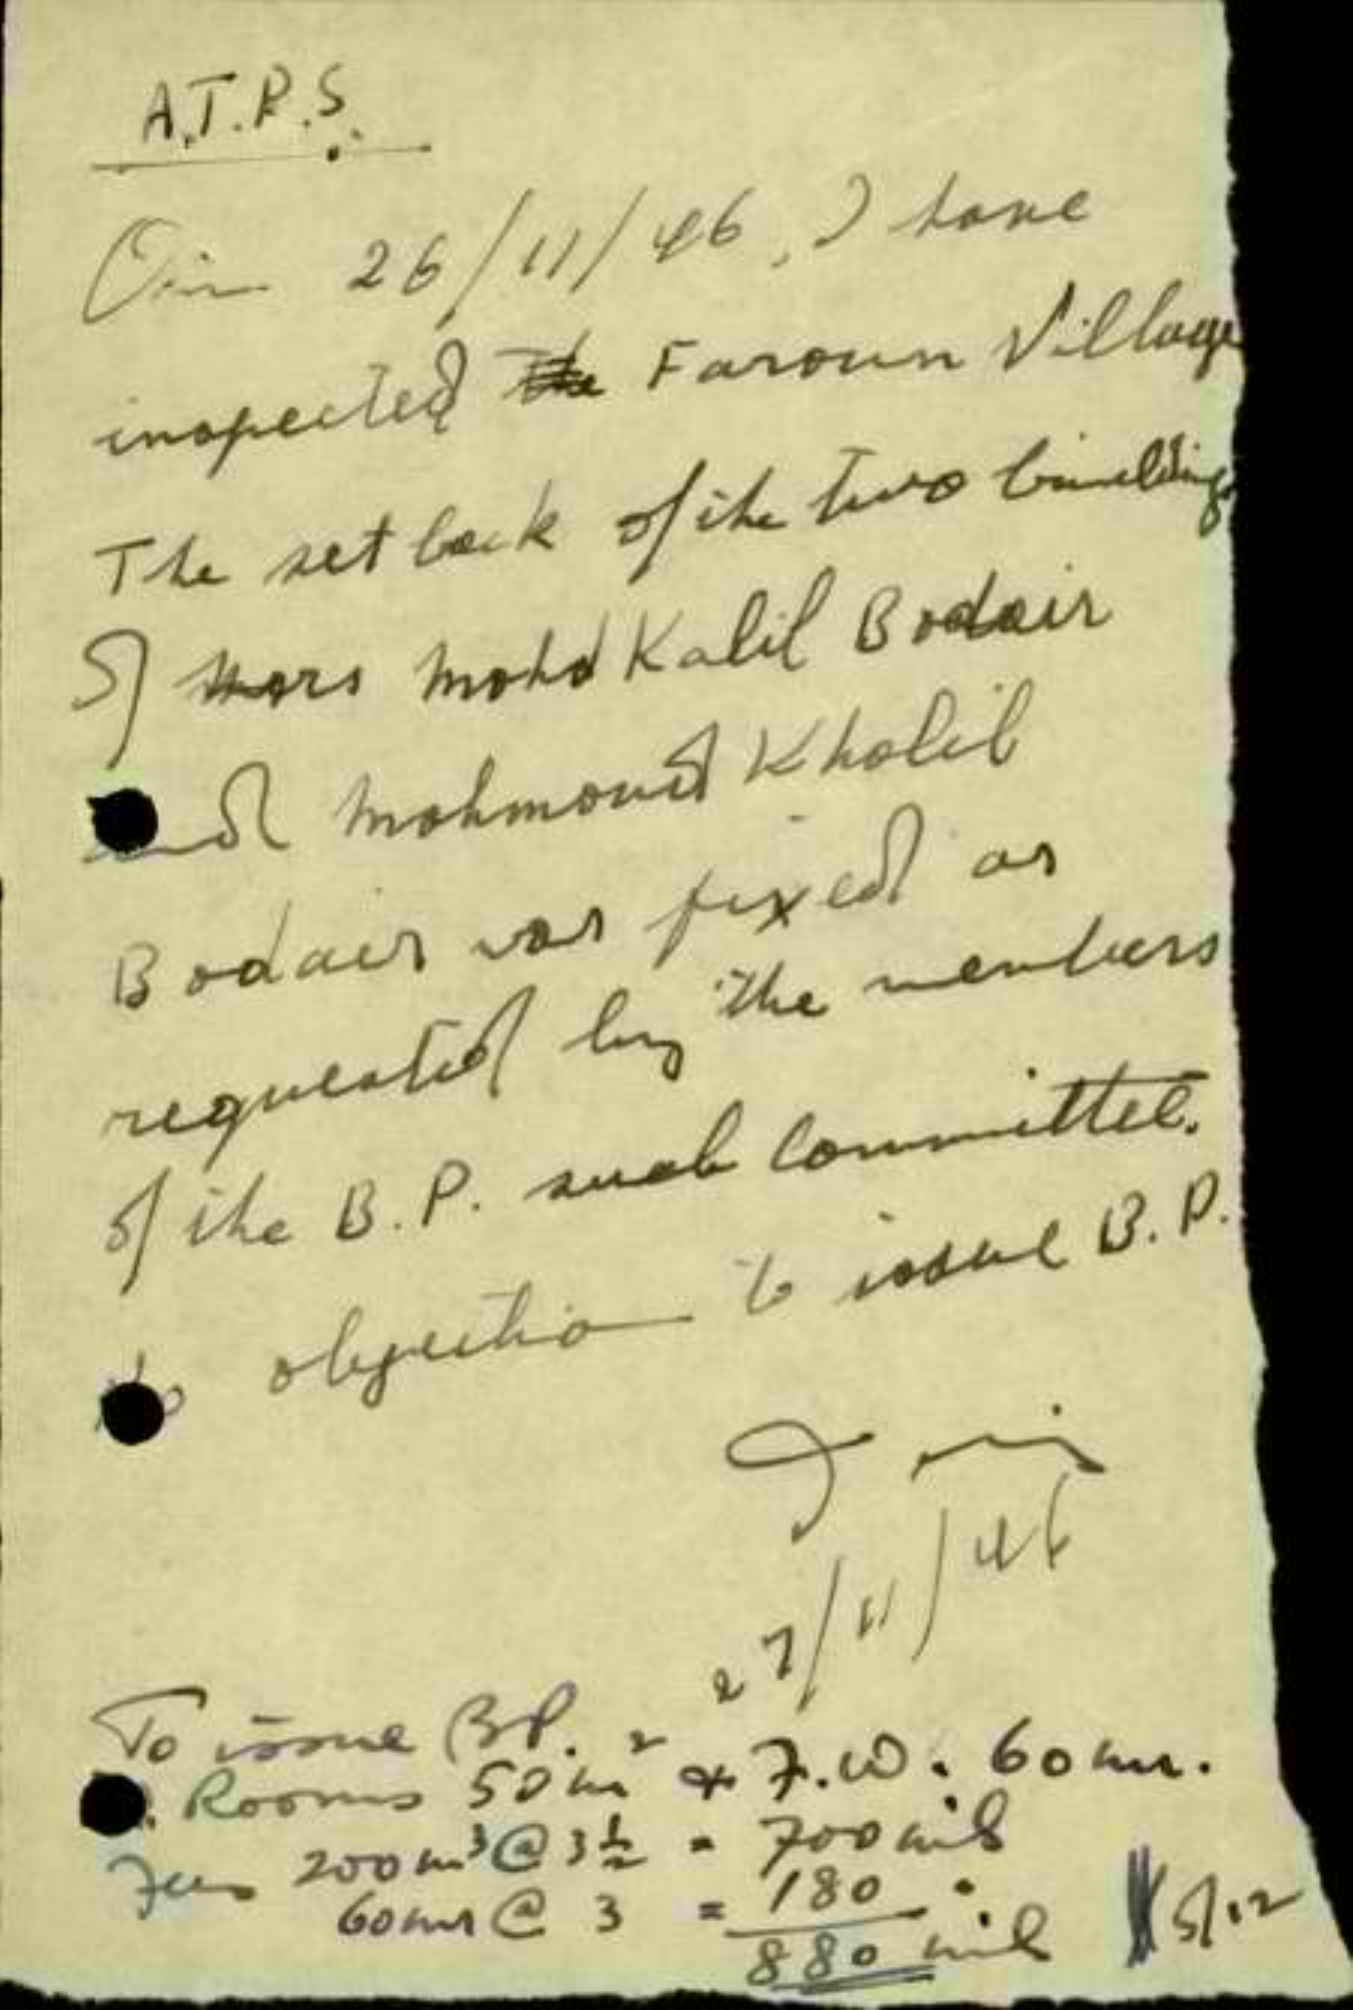 A.T.P.S.
On 26/11/46, I have
inspected Faroun Village
The set back of the two buildings
of Mohd Kalil Bodair
and Mahmoud Khalil
Bodair was fixed as
requested by the members
of the B.P. sub Committee.
No objection to issue B.P.
27/11/46
To issue B.P.
Rooms 50 m² & F.W. 60 mr.
Fees 200 m³ @ 3½ = 700 mils
60 mr @ 3 = 180 "
880 mils
5/12